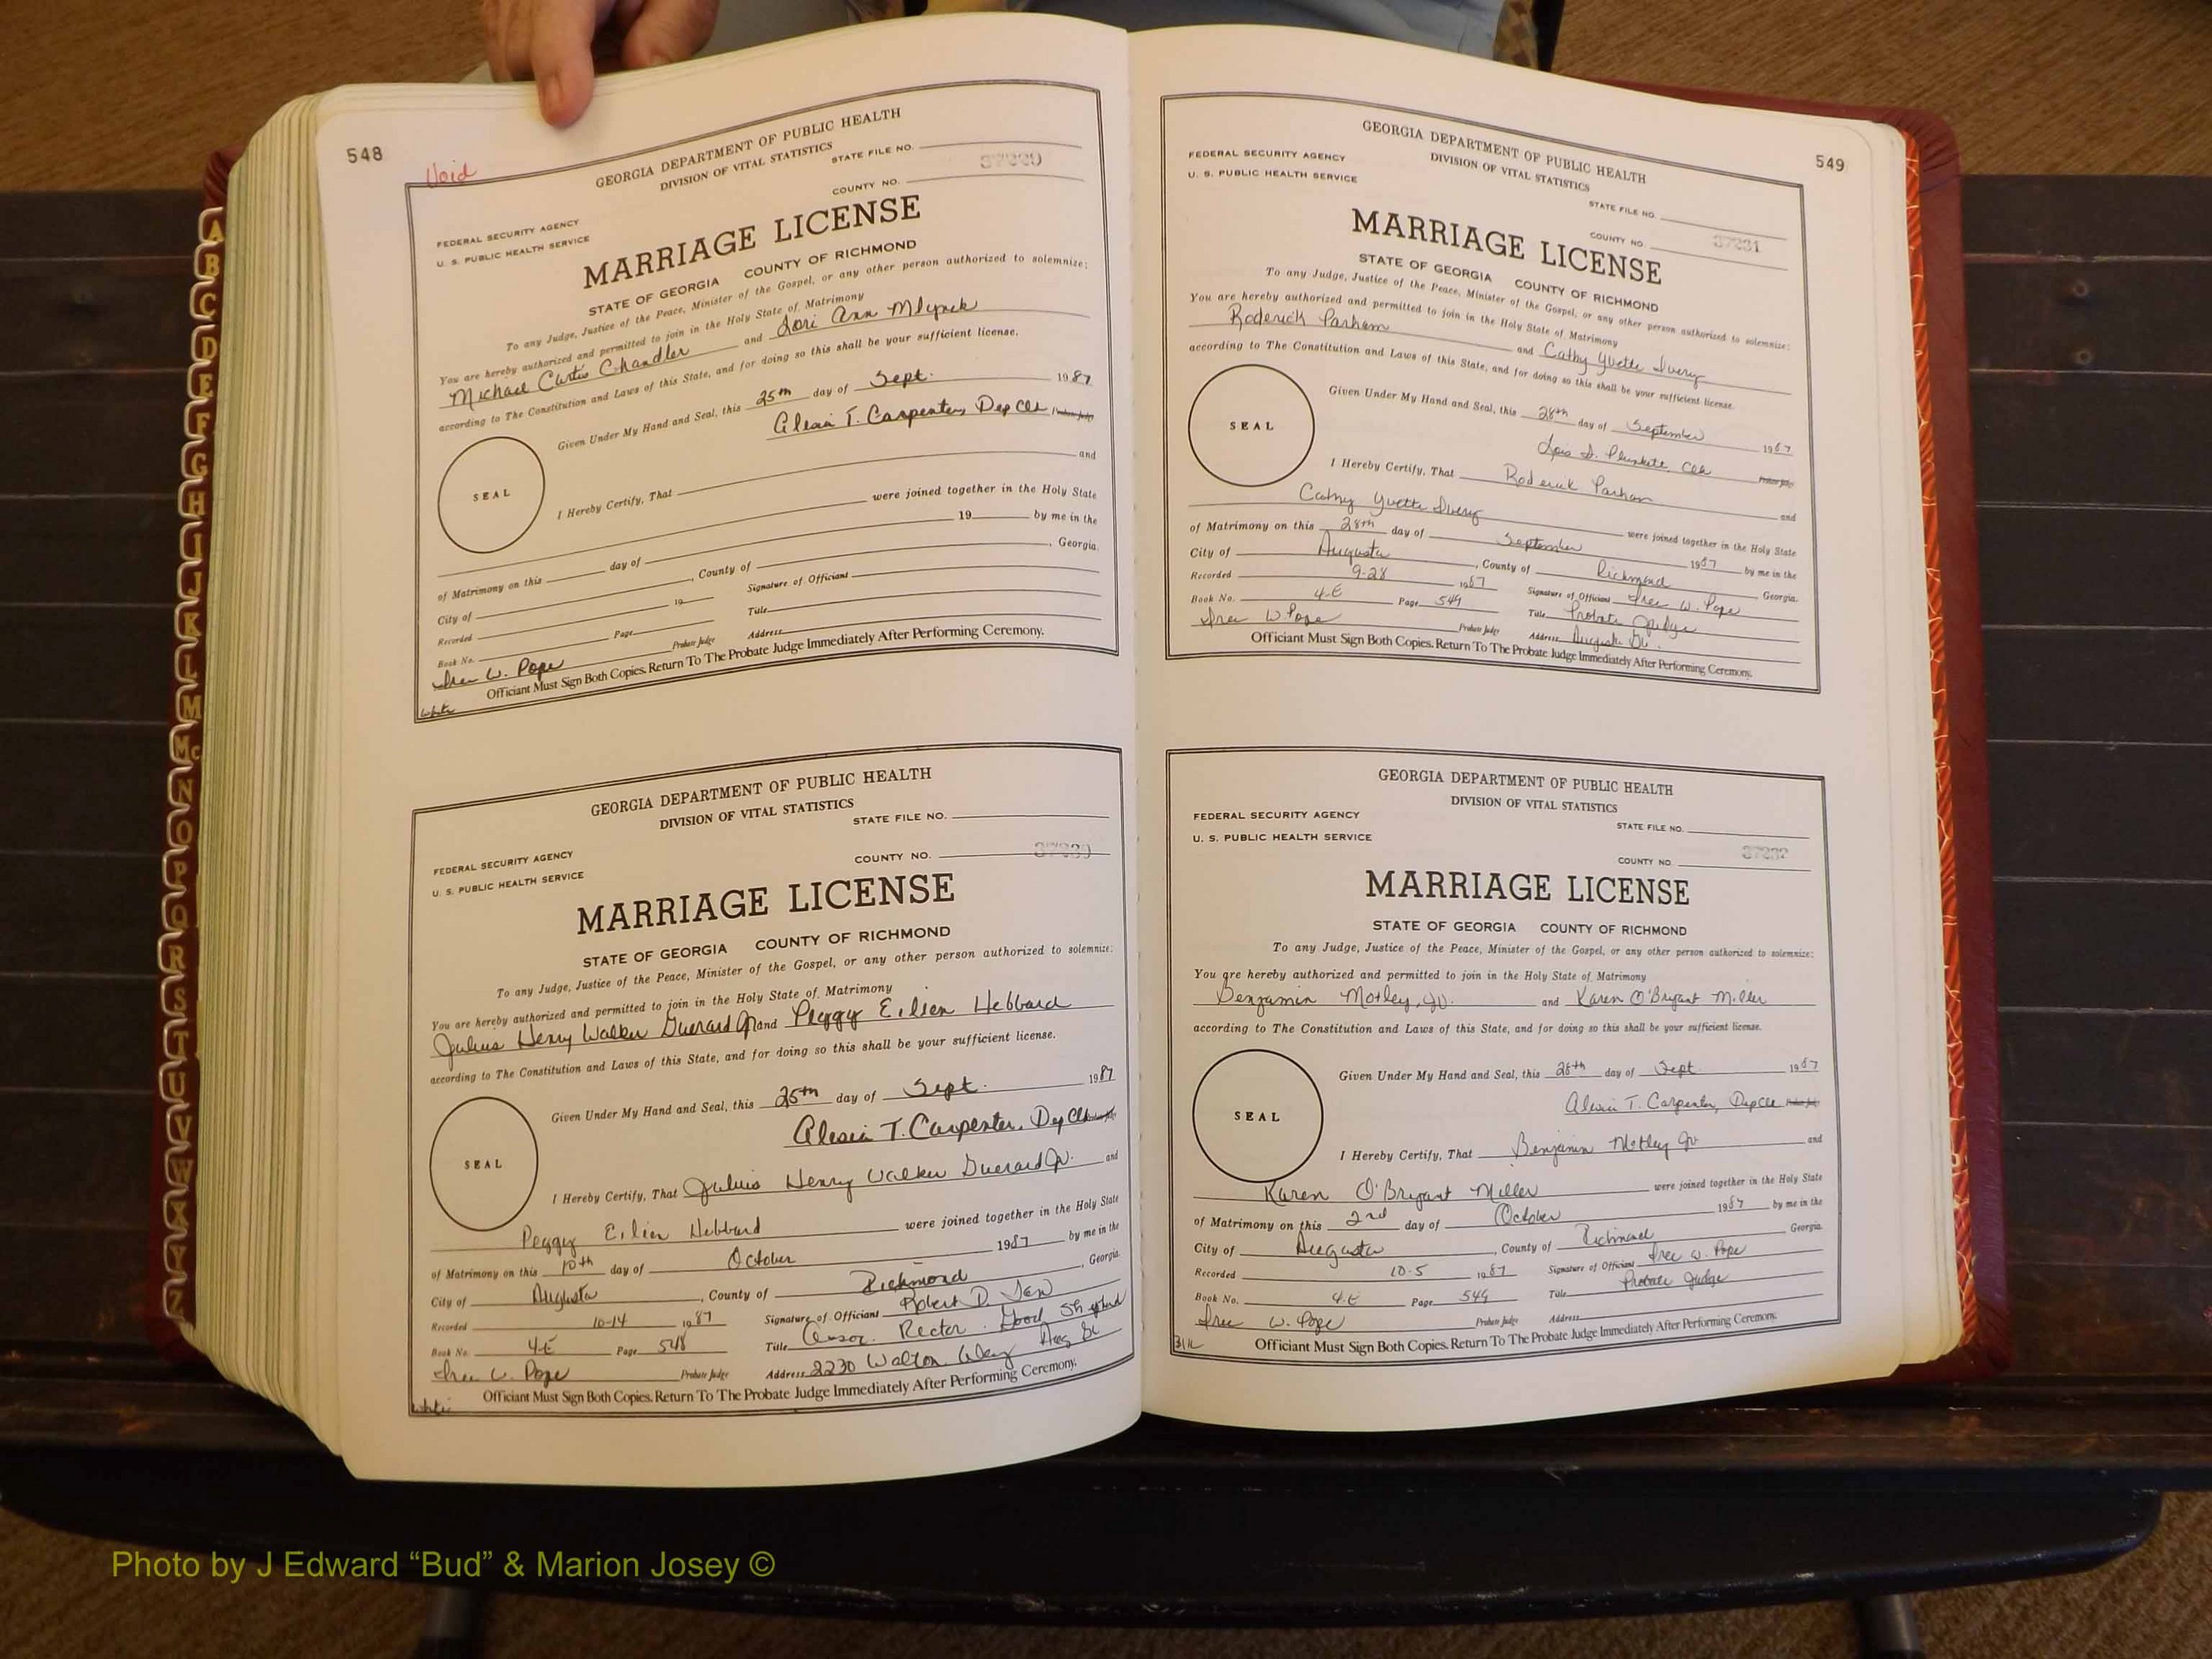 548
Void
GEORGIA DEPARTMENT OF PUBLIC HEALTH
DIVISION OF VITAL STATISTICS
STATE FILE NO.
COUNTY NO.
FEDERAL SECURITY AGENCY
U. S. PUBLIC HEALTH SERVICE
MARRIAGE LICENSE
STATE OF GEORGIA COUNTY OF RICHMOND
To any Judge, Justice of the Peace, Minister of the Gospel, or any other person authorized to solemnize:
You are hereby authorized and permitted to join in the Holy State of Matrimony
Michael Curtis Chandler and Lori Ann Mlynek
according to The Constitution and Laws of this State, and for doing so this shall be your sufficient license.
Given Under My Hand and Seal, this 25th day of Sept. 1987
Alesia T. Carpenter, Dep Clk Probate Judge
SEAL
I Hereby Certify, That and
were joined together in the Holy State
of Matrimony on this day of 19 by me in the
City of , County of , Georgia.
Recorded 19 Signature of Officiant
Book No. Page Title
Irene W. Pope Probate Judge Address
Officiant Must Sign Both Copies. Return To The Probate Judge Immediately After Performing Ceremony.
White
GEORGIA DEPARTMENT OF PUBLIC HEALTH
DIVISION OF VITAL STATISTICS
STATE FILE NO.
COUNTY NO.
FEDERAL SECURITY AGENCY
U. S. PUBLIC HEALTH SERVICE
MARRIAGE LICENSE
STATE OF GEORGIA COUNTY OF RICHMOND
To any Judge, Justice of the Peace, Minister of the Gospel, or any other person authorized to solemnize:
You are hereby authorized and permitted to join in the Holy State of Matrimony
Julius Henry Walker Guerard Jr and Peggy Eileen Hebbard
according to The Constitution and Laws of this State, and for doing so this shall be your sufficient license.
Given Under My Hand and Seal, this 25th day of Sept. 1987
Alesia T. Carpenter, Dep Clk
SEAL
I Hereby Certify, That Julius Henry Walker Guerard Jr. and
Peggy Eileen Hebbard were joined together in the Holy State
of Matrimony on this 10th day of October 1987 by me in the
City of Augusta , County of Richmond , Georgia.
Recorded 10-14 1987 Signature of Officiant Robert D.
Book No. 4-E Page 548 Title Rector Good Shepherd
Irene W. Pope Probate Judge Address 2230 Walton Way Aug Ga
Officiant Must Sign Both Copies. Return To The Probate Judge Immediately After Performing Ceremony.
White
549
GEORGIA DEPARTMENT OF PUBLIC HEALTH
DIVISION OF VITAL STATISTICS
FEDERAL SECURITY AGENCY
U. S. PUBLIC HEALTH SERVICE
STATE FILE NO.
COUNTY NO. 37231
MARRIAGE LICENSE
STATE OF GEORGIA COUNTY OF RICHMOND
To any Judge, Justice of the Peace, Minister of the Gospel, or any other person authorized to solemnize:
You are hereby authorized and permitted to join in the Holy State of Matrimony
Roderick Parham and Cathy Yvette Ivery
according to The Constitution and Laws of this State, and for doing so this shall be your sufficient license.
Given Under My Hand and Seal, this 28th day of September 1987
Lois D. Plunkett Clk Probate Judge
SEAL
I Hereby Certify, That Roderick Parham and
Cathy Yvette Ivery were joined together in the Holy State
of Matrimony on this 28th day of September 1987 by me in the
City of Augusta , County of Richmond Georgia.
Recorded 9-28 1987 Signature of Officiant Irene W. Pope
Book No. 4-E Page 549 Title Probate Judge
Irene W. Pope Probate Judge Address Augusta Ga.
Officiant Must Sign Both Copies. Return To The Probate Judge Immediately After Performing Ceremony.
GEORGIA DEPARTMENT OF PUBLIC HEALTH
DIVISION OF VITAL STATISTICS
FEDERAL SECURITY AGENCY
U. S. PUBLIC HEALTH SERVICE
STATE FILE NO.
COUNTY NO. 37232
MARRIAGE LICENSE
STATE OF GEORGIA COUNTY OF RICHMOND
To any Judge, Justice of the Peace, Minister of the Gospel, or any other person authorized to solemnize:
You are hereby authorized and permitted to join in the Holy State of Matrimony
Benjamin Motley, Jr. and Karen O'Bryant Miller
according to The Constitution and Laws of this State, and for doing so this shall be your sufficient license.
Given Under My Hand and Seal, this 28th day of Sept 1987
Alesia T. Carpenter, Dep Clk
SEAL
I Hereby Certify, That Benjamin Motley Jr and
Karen O'Bryant Miller were joined together in the Holy State
of Matrimony on this 2nd day of October 1987 by me in the
City of Augusta , County of Richmond Georgia.
Recorded 10-5 1987 Signature of Officiant Irene W. Pope
Book No. 4-E Page 549 Title Probate Judge
Irene W. Pope Probate Judge Address
Officiant Must Sign Both Copies. Return To The Probate Judge Immediately After Performing Ceremony.
Blk
A
B
C
D
E
F
G
H
I
J
K
L
M
Mc
N
O
P
Q
R
S
T
U
V
W
X
Y
Z
Photo by J Edward “Bud” & Marion Josey ©